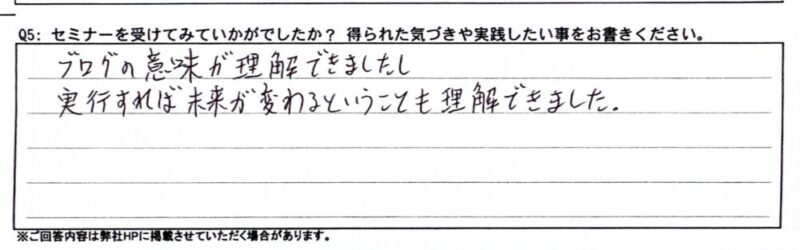 Q5: セミナーを受けてみていかがでしたか？ 得られた気づきや実践したい事をお書きください。
ブログの意味が理解できましたし
実行すれば未来が変わるということも理解できました。
※ご回答内容は弊社HPに掲載させていただく場合があります。